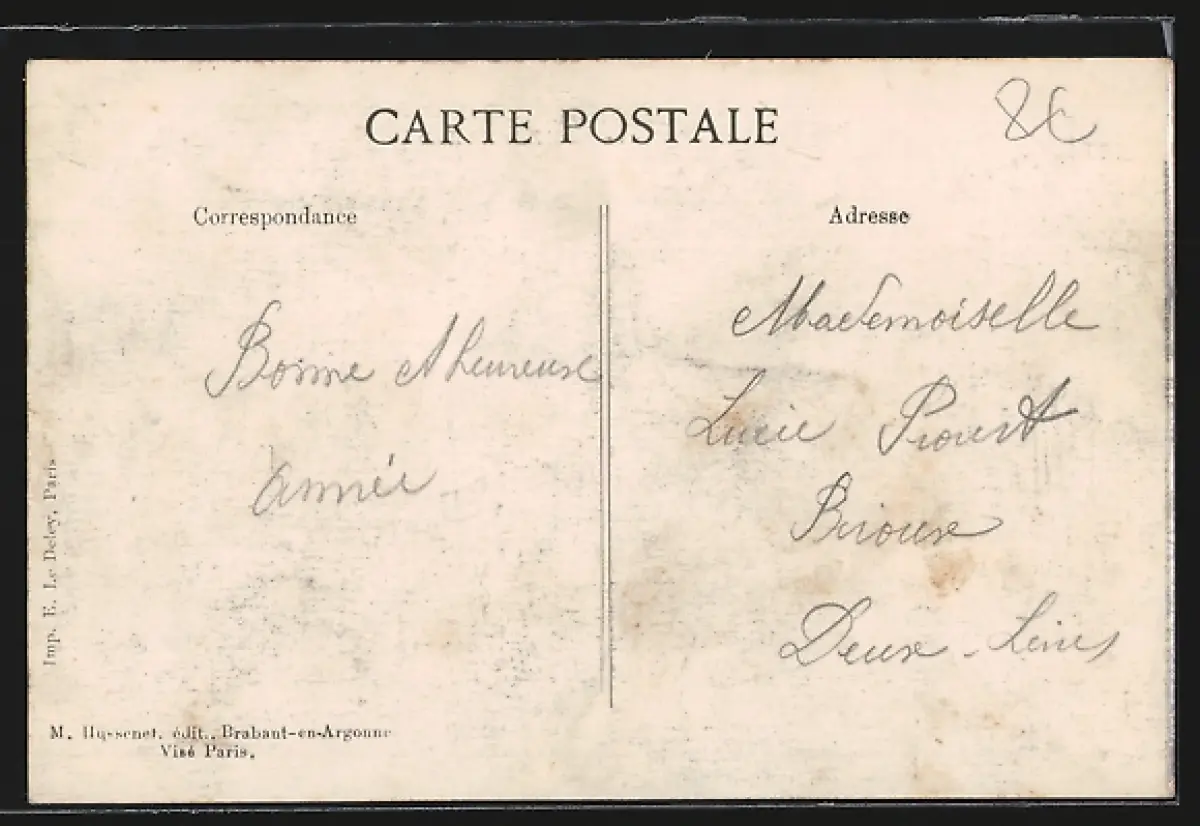 CARTE POSTALE
8€
Correspondance
Adresse
Bonne et heureuse
année
Mademoiselle
Lucie Proust
Brioux
Deux-Sèvres
Imp. E. Le Deley, Paris
M. Hussenet, édit., Brabant-en-Argonne
Visé Paris.